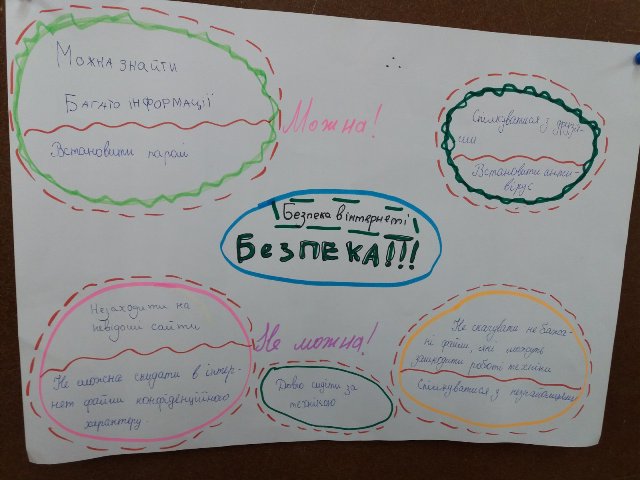 Можна знайти
Багато інформації
Встановити паролі
Можна!
Спілкуватися з друзя-
ми
Встановити анти-
вірус
Безпека в інтернеті
БЕЗПЕКА!!!
Незаходити на
невідомі сайти
Не можна скидати в інтер-
нет файли конфіденційного
характеру.
Не можна!
Довго сидіти за
технікою
Не скачувати не бажа-
ні файли, які можуть
зашкодити роботі техніки
Спілкуватися з незнайомцями